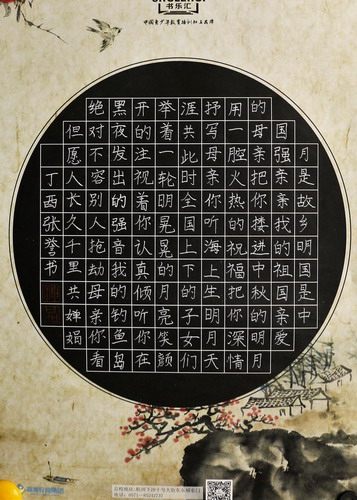 书乐汇
中国青少年教育培训知名品牌
月是故乡明国是中
国强亲亲我的祖国亲爱
的母亲把你搂进中秋的明月
用一腔火热的祝福把你深情
抒写母亲你听海上生明月天
涯共此时全国上下的子女们
举着一轮明晃晃的月亮笑颜
开的注视着你认真的倾听你在
黑夜发出的强音我的钓鱼岛
绝对不容别人抢劫母亲的看
但愿人长久千里共婵娟
丁酉张誉书